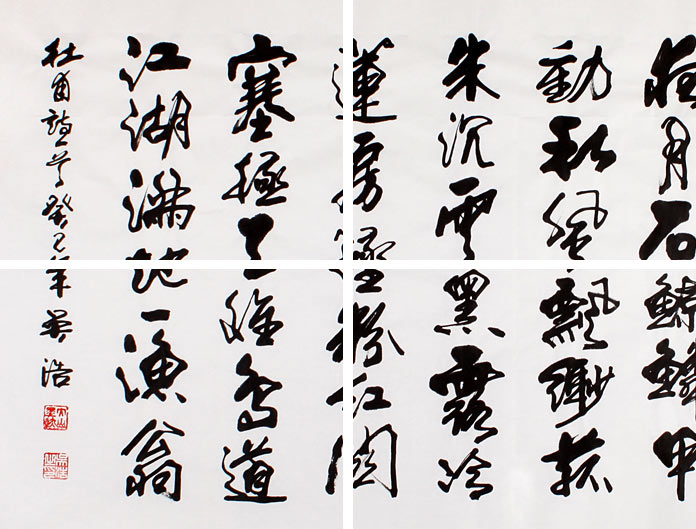 夜月石鯨鱗甲
動秋風飄緲菰
朱沉雲黑露冷
蓮房墜粉紅關
塞極天惟鳥道
江湖滿地一漁翁
杜甫詩一首癸巳年吳浩